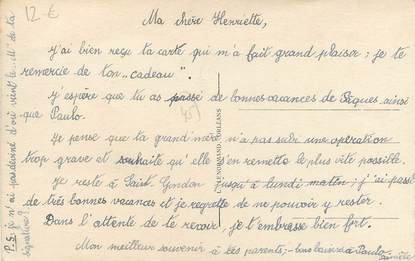 12 €
Ma chère Henriette,
J'ai bien reçu ta carte qui m'a fait grand plaisir ; je te
remercie de ton „cadeau".
J'espère que tu as passé de bonnes vacances de Pâques ainsi
que Paulo.
Je pense que ta grand'mère n'a pas subi une opération
trop grave et souhaite qu'elle s'en remette le plus vite possible.
Je reste à Saint Gondon jusqu'à lundi matin ; j'ai passé
de très bonnes vacances et je regrette de ne pouvoir y rester.
Dans l'attente de te revoir, je t'embrasse bien fort.
Mon meilleur souvenir à tes parents, - bons baisers à Paulo
P.S. je n'ai pas deviné d'où vient le „M" de la
signature !
LENORMAND, ORLÉANS